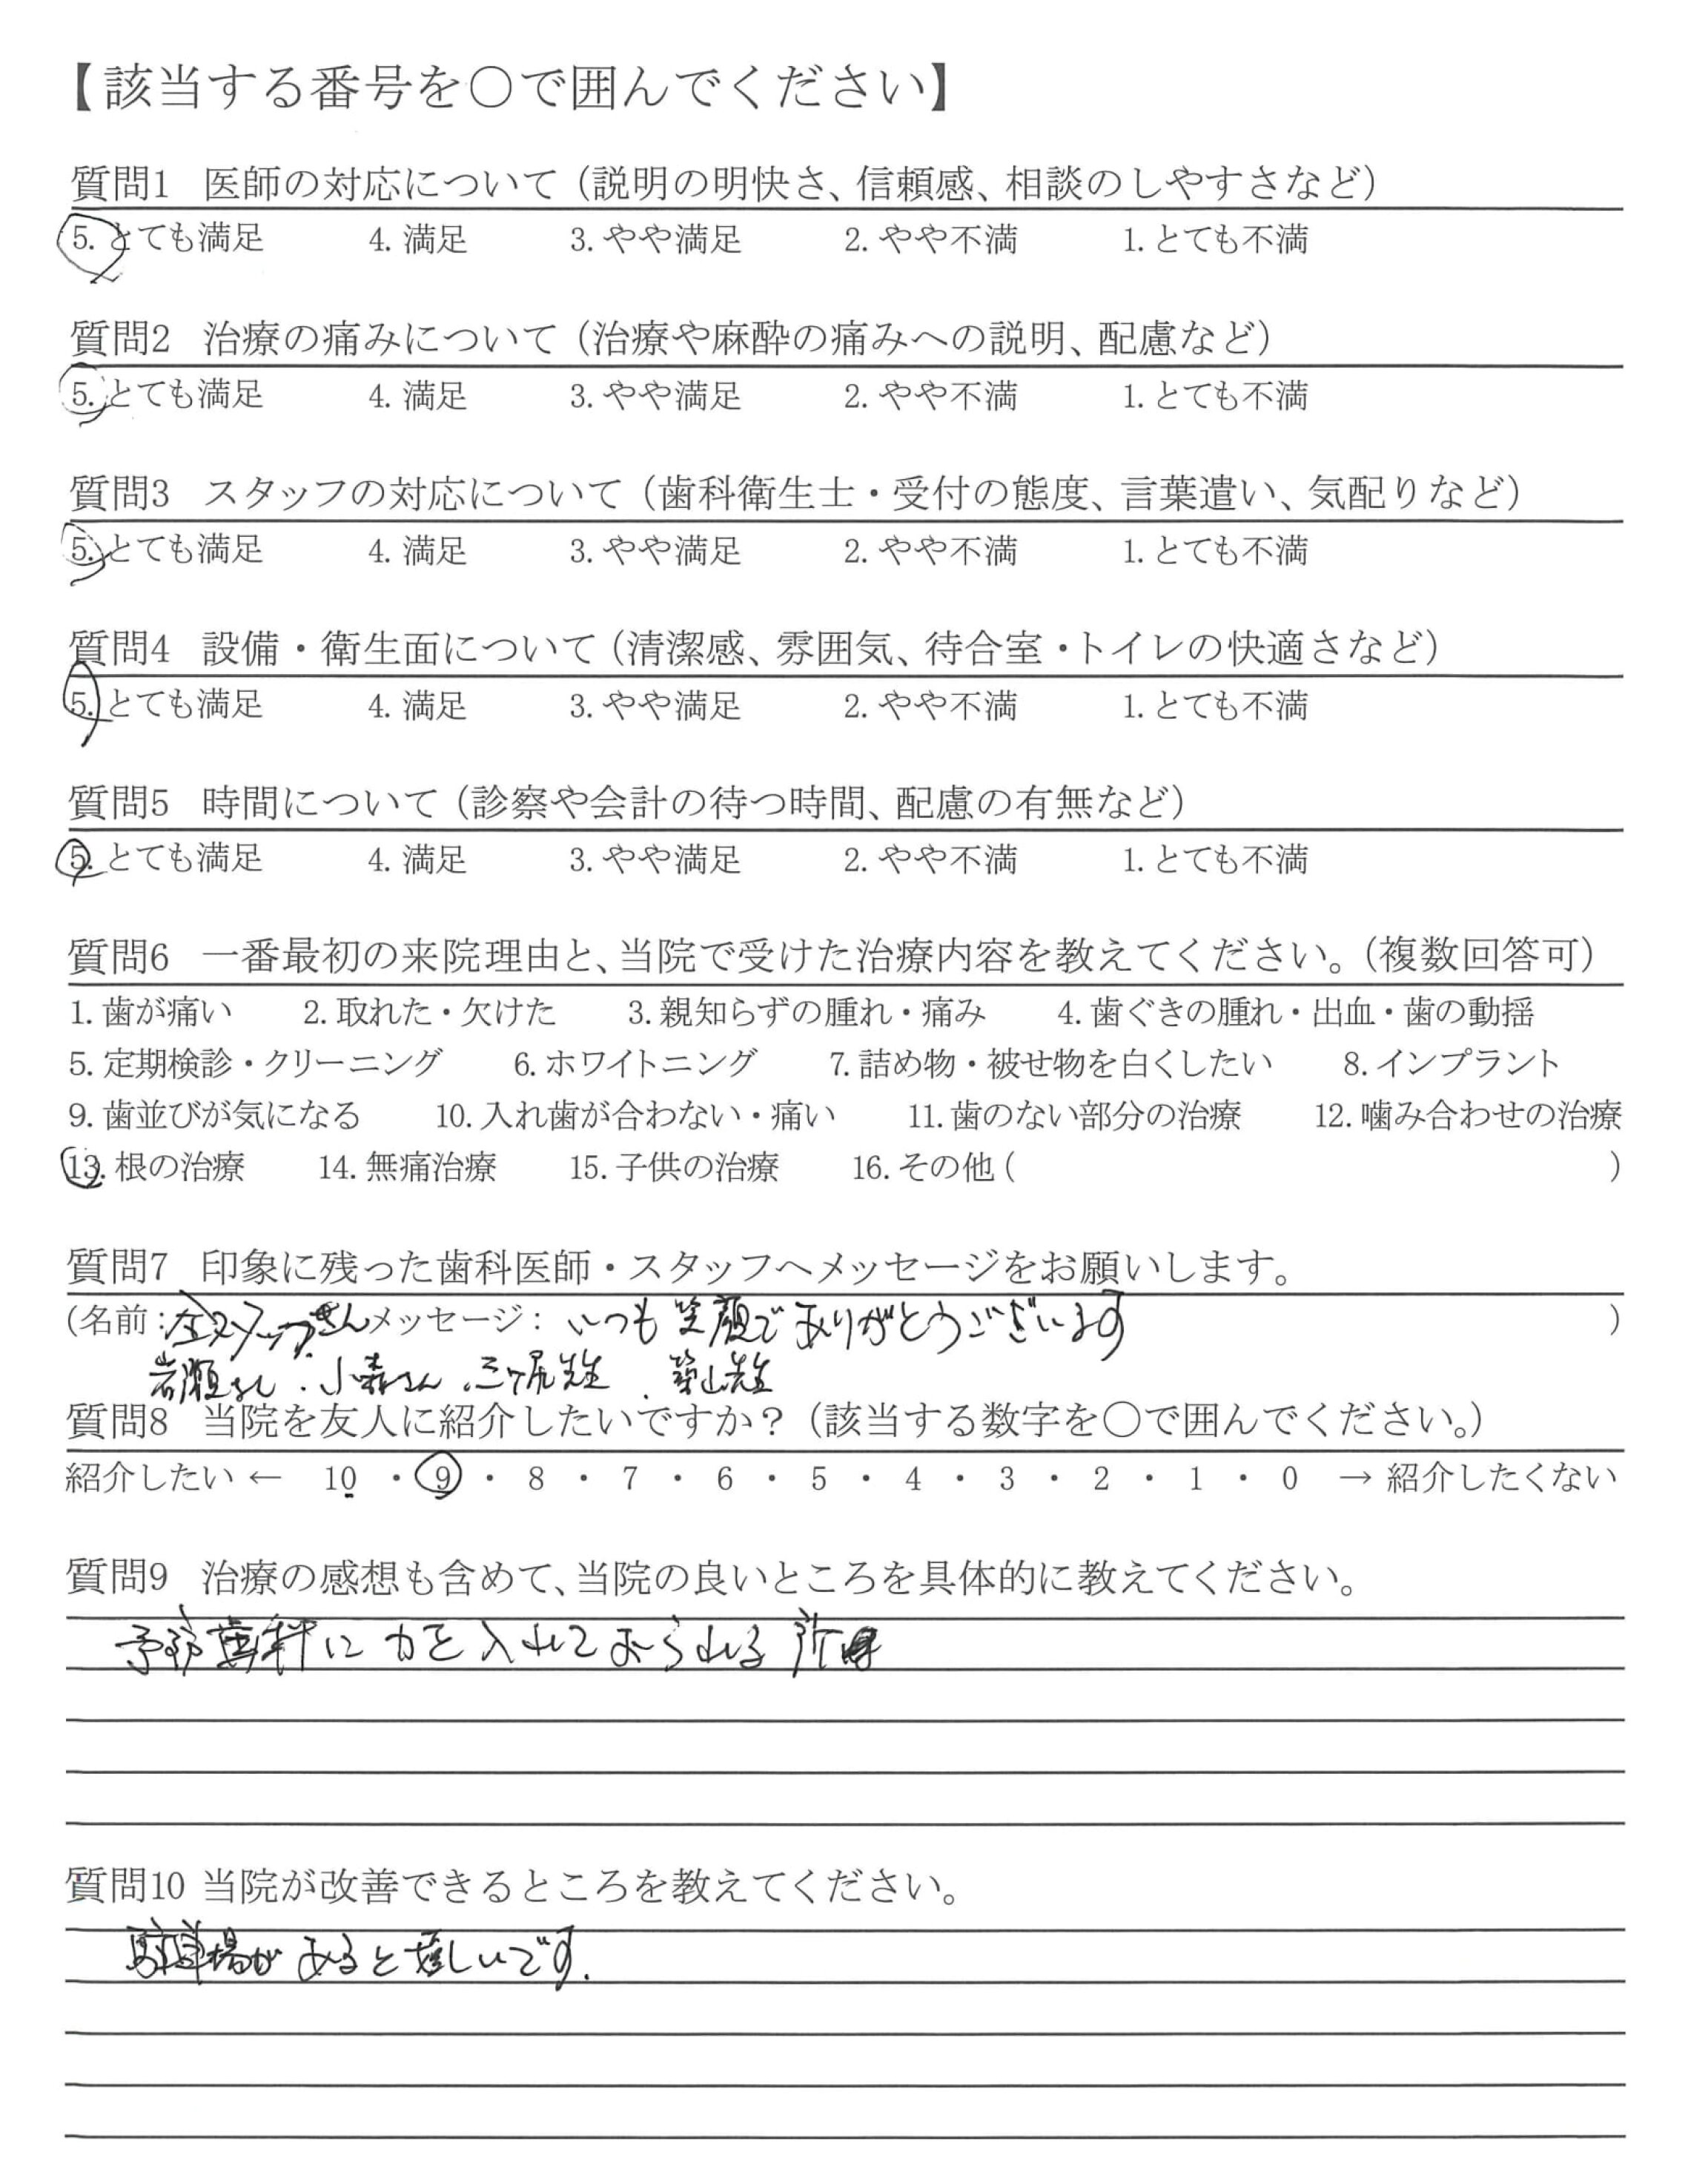 【該当する番号を〇で囲んでください】
質問1 医師の対応について（説明の明快さ、信頼感、相談のしやすさなど）
5. とても満足 4. 満足 3. やや満足 2. やや不満 1. とても不満
質問2 治療の痛みについて（治療や麻酔の痛みへの説明、配慮など）
5. とても満足 4. 満足 3. やや満足 2. やや不満 1. とても不満
質問3 スタッフの対応について（歯科衛生士・受付の態度、言葉遣い、気配りなど）
5. とても満足 4. 満足 3. やや満足 2. やや不満 1. とても不満
質問4 設備・衛生面について（清潔感、雰囲気、待合室・トイレの快適さなど）
5. とても満足 4. 満足 3. やや満足 2. やや不満 1. とても不満
質問5 時間について（診察や会計の待つ時間、配慮の有無など）
5. とても満足 4. 満足 3. やや満足 2. やや不満 1. とても不満
質問6 一番最初の来院理由と、当院で受けた治療内容を教えてください。（複数回答可）
1. 歯が痛い 2. 取れた・欠けた 3. 親知らずの腫れ・痛み 4. 歯ぐきの腫れ・出血・歯の動揺
5. 定期検診・クリーニング 6. ホワイトニング 7. 詰め物・被せ物を白くしたい 8. インプラント
9. 歯並びが気になる 10. 入れ歯が合わない・痛い 11. 歯のない部分の治療 12. 噛み合わせの治療
13. 根の治療 14. 無痛治療 15. 子供の治療 16. その他 ( )
質問7 印象に残った歯科医師・スタッフへメッセージをお願いします。
(名前：全スタッフさん メッセージ： いつも笑顔でありがとうございます )
岩瀬さん・小森さん・三ケ尻先生・築山先生
質問8 当院を友人に紹介したいですか？（該当する数字を〇で囲んでください。）
紹介したい ← 10 ・ 9 ・ 8 ・ 7 ・ 6 ・ 5 ・ 4 ・ 3 ・ 2 ・ 1 ・ 0 → 紹介したくない
質問9 治療の感想も含めて、当院の良いところを具体的に教えてください。
予防歯科に力を入れておられる所
質問10 当院が改善できるところを教えてください。
駐車場があると嬉しいです.